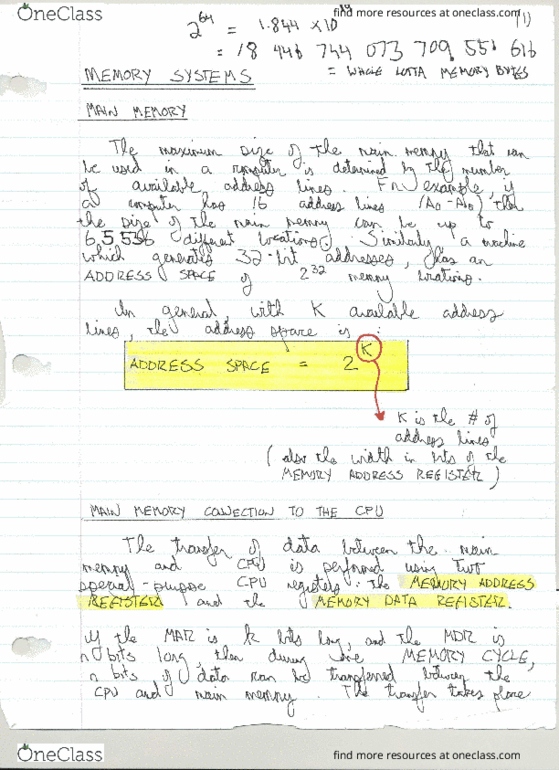 OneClass
find more resources at oneclass.com
(1)
2^64 = 1.844 x 10^19
= 18 446 744 073 709 551 616
= WHOLE LOTTA MEMORY BYTES
MEMORY SYSTEMS
MAIN MEMORY
The maximum size of the main memory that can
be used in a computer is determined by the number
of available address lines. For example, if
a computer has 16 address lines then
the size of the main memory can be up to
65,536 different locations. Similarly a machine
which generates 32-bit addresses, has an
ADDRESS SPACE of 2^32 memory locations.
In general, with K available address
lines, the address space is :
ADDRESS SPACE = 2^K
K is the # of
address lines
(also the width in bits of the
MEMORY ADDRESS REGISTER)
MAIN MEMORY CONNECTION TO THE CPU
The transfer of data between the main
memory and CPU is performed using two
special-purpose CPU registers: the MEMORY ADDRESS
REGISTER and the MEMORY DATA REGISTER.
If the MAR is k bits long, and the MDR is
n bits long, then during one MEMORY CYCLE,
n bits of data can be transferred between the
CPU and main memory. The transfer takes place
OneClass
find more resources at oneclass.com